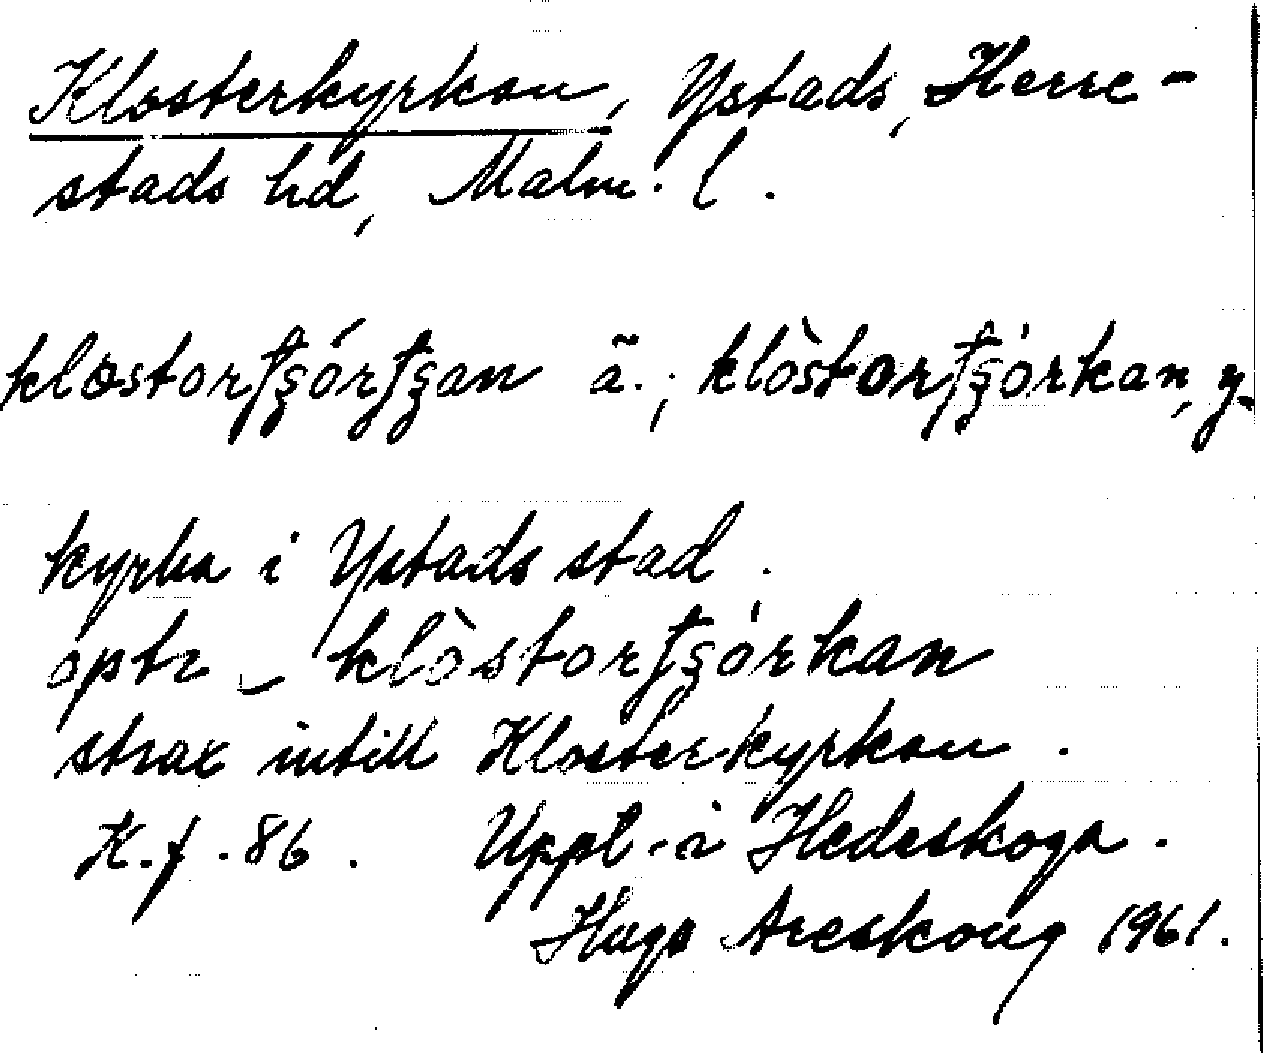 Klosterkyrkan, Ystads, Herre-
stads hd, Malm. l.
klostorʃʒórʃʒan ä.; klòstorʃʒórkan, y.
kyrka i Ystads stad.
klòstorʃʒórkan
strax intill Klosterkyrkan.
K. f. 86. Uppt. i Hedeskoga.
Hugo Areskoug 1961.